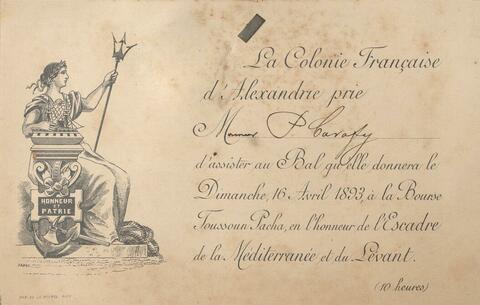 La Colonie Française
d'Alexandrie prie
Monsieur P Cavafy
d'assister au Bal qu'elle donnera le
Dimanche, 16 Avril 1893, à la Bourse
Toussoun Pacha, en l'honneur de l'Escadre
de la Méditerranée et du Levant.
(10 heures)
HONNEUR
ET
PATRIE